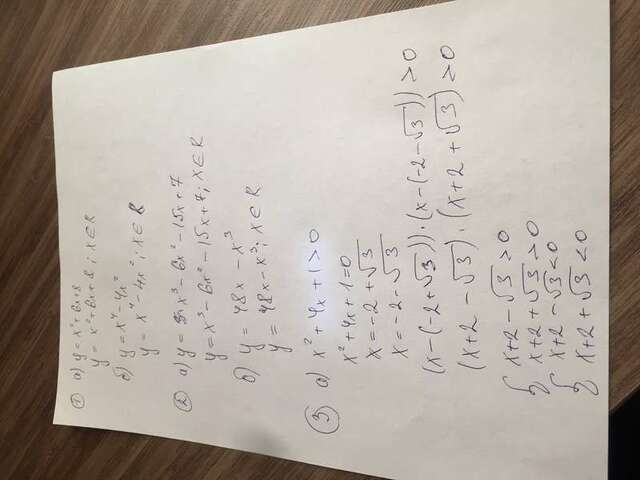 ① а) y = x² + 6x + 8
y = x² + 6x + 8 ; x ∈ R
б) y = x⁴ - 4x²
y = x⁴ - 4x² ; x ∈ R
② а) y = x³ - 6x² - 15x + 7
y = x³ - 6x² - 15x + 7 ; x ∈ R
б) y = 48x - x³
y = 48x - x³ ; x ∈ R
③ а) x² + 4x + 1 > 0
x² + 4x + 1 = 0
x = -2 + √3
x = -2 - √3
(x - (-2 + √3)) · (x - (-2 - √3)) > 0
(x + 2 - √3) · (x + 2 + √3) > 0
{ x + 2 - √3 > 0
x + 2 + √3 > 0
{ x + 2 - √3 < 0
x + 2 + √3 < 0